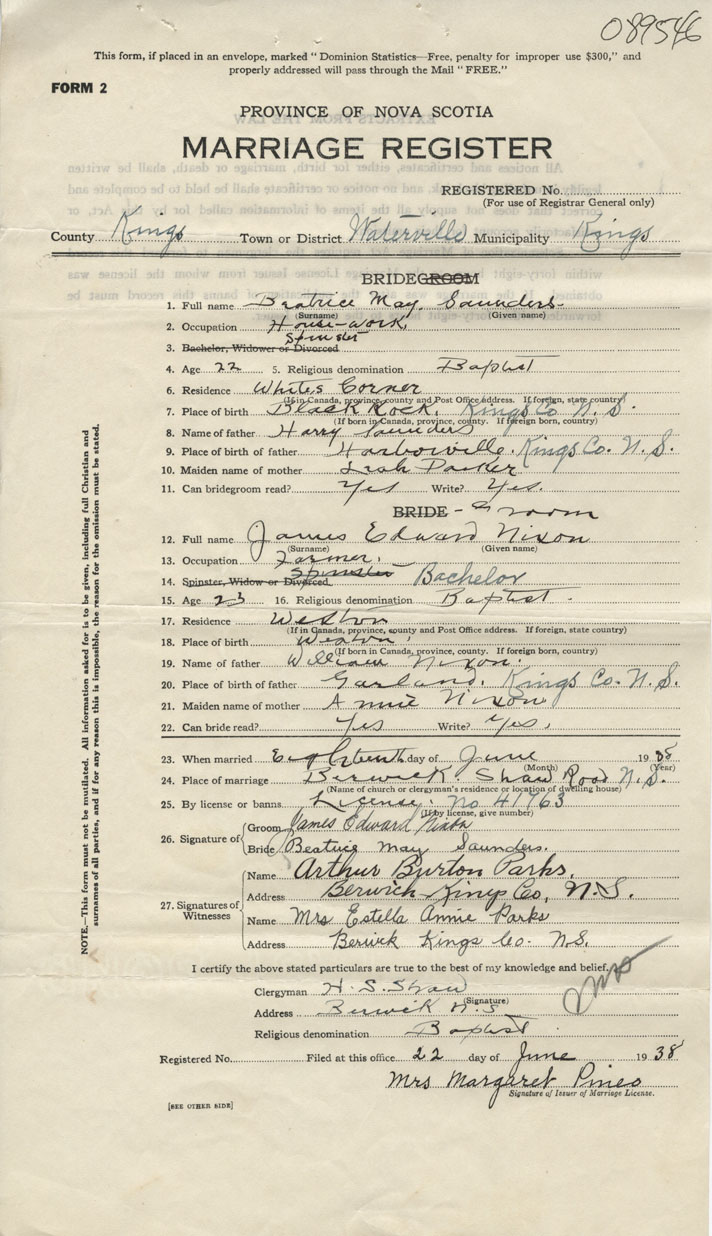 089546
This form, if placed in an envelope, marked "Dominion Statistics—Free, penalty for improper use $300," and
properly addressed will pass through the Mail "FREE."
FORM 2
PROVINCE OF NOVA SCOTIA
MARRIAGE REGISTER
REGISTERED No.
(For use of Registrar General only)
County Kings Town or District Waterville Municipality Kings
BRIDEGROOM
1. Full name Beatrice May Saunders.
(Surname) (Given name)
2. Occupation House-work
Spinster
3. Bachelor, Widower or Divorced
4. Age 22 5. Religious denomination Baptist
6. Residence Whites Corner
(If in Canada, province, county and Post Office address. If foreign, state country)
7. Place of birth Black Rock, Kings Co N. S.
(If born in Canada, province, county. If foreign born, country)
8. Name of father Harry Saunders
9. Place of birth of father Harborville. Kings Co. N. S.
10. Maiden name of mother Leah Parker
11. Can bridegroom read? Yes Write? Yes.
BRIDE - Groom
12. Full name James Edward Nixon
(Surname) (Given name)
13. Occupation Farmer.
Spinster Bachelor
14. Spinster, Widow or Divorced
15. Age 23 16. Religious denomination Baptist.
17. Residence Weston
(If in Canada, province, county and Post Office address. If foreign, state country)
18. Place of birth Weston.
(If born in Canada, province, county. If foreign born, country)
19. Name of father William Nixon.
20. Place of birth of father Garland. Kings Co. N. S.
21. Maiden name of mother Annie Nixon
22. Can bride read? Yes Write? Yes.
23. When married Eighteenth day of June 1938
(Month) (Year)
24. Place of marriage Berwick. Shaw Road N. S.
(Name of church or clergyman's residence or location of dwelling house)
25. By license or banns License. No 41763
(If by license, give number)
26. Signature of Groom James Edward Nixon
Bride Beatrice May Saunders.
27. Signatures of Witnesses Name Arthur Burton Parks.
Address Berwick Kings Co, N.S.
Name Mrs Estella Annie Parks
Address Berwick Kings Co. N.S.
I certify the above stated particulars are true to the best of my knowledge and belief.
Clergyman H. S. Shaw
(Signature)
Address Berwick N. S
Religious denomination Baptist
Registered No. Filed at this office 22 day of June 1938
Mrs Margaret Pineo
Signature of Issuer of Marriage License.
[SEE OTHER SIDE]
NOTE.—This form must not be mutilated. All information asked for is to be given, including full Christian and
surnames of all parties, and if for any reason this is impossible, the reason for the omission must be stated.